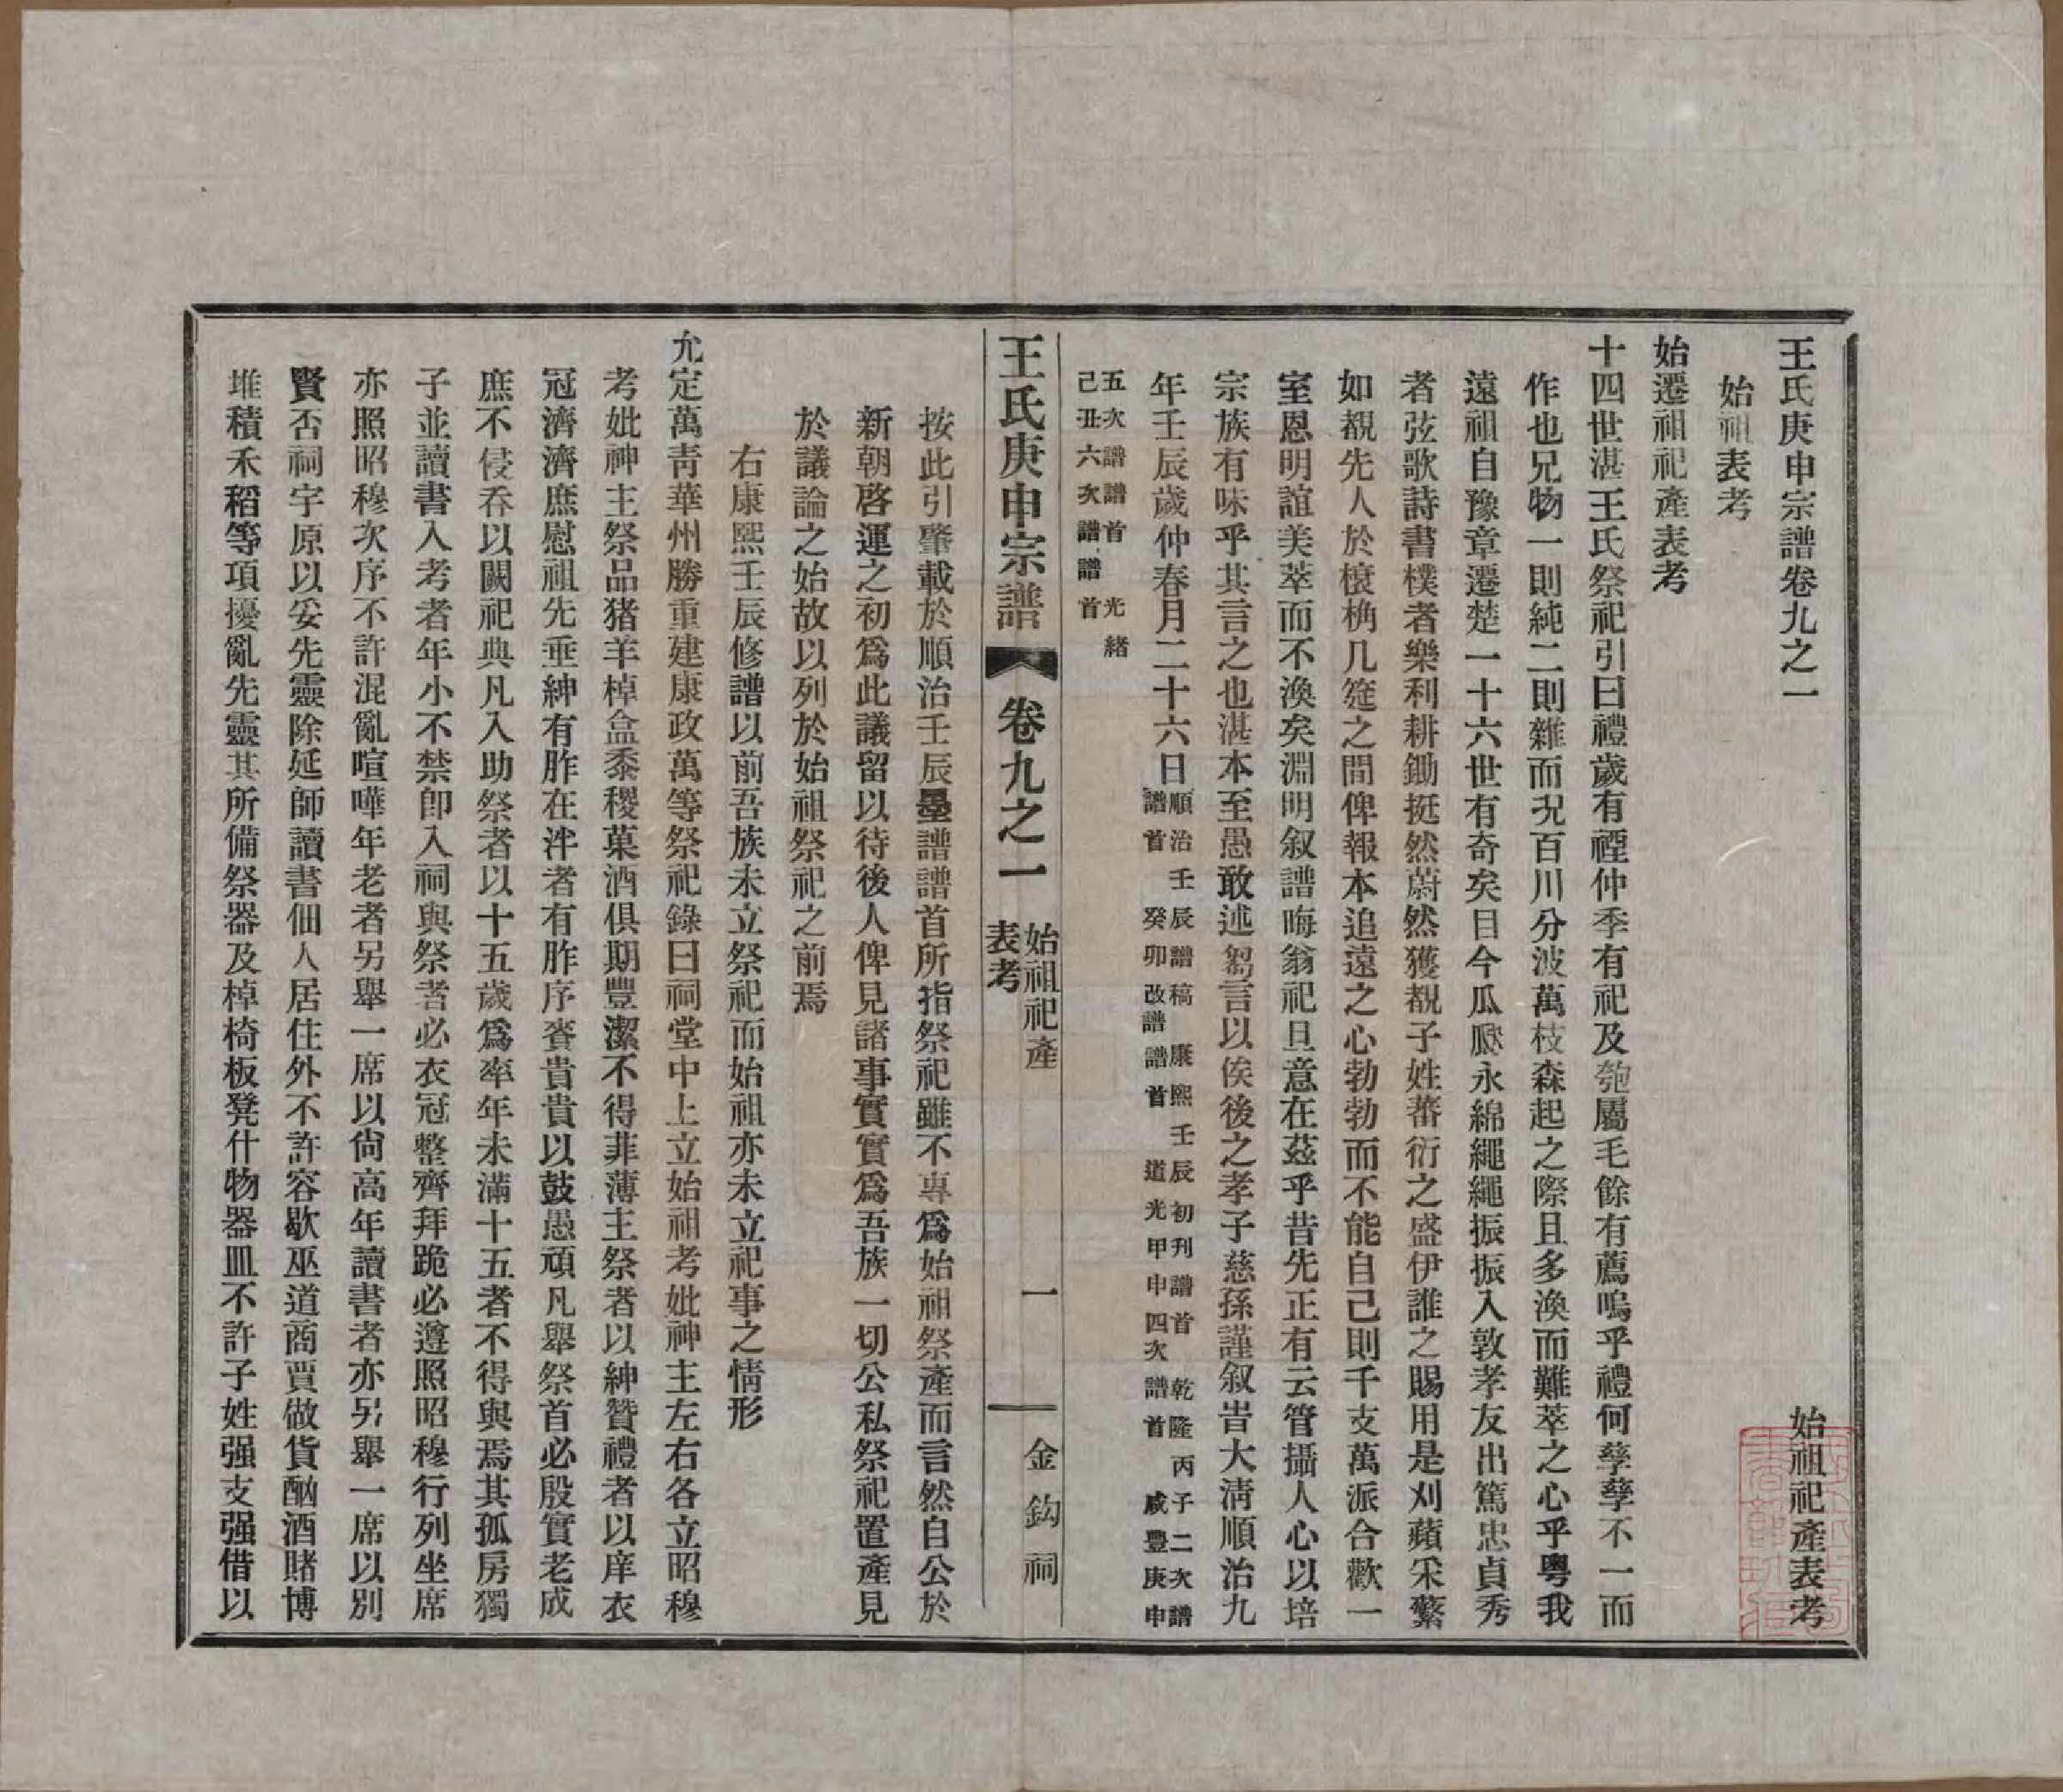 王氏庚申宗譜卷九之一　始祖祀產表考
始祖表考
始遷祖祀產表考
十四世湛王氏祭祀引曰禮歲有禋仲季有祀及匏屬毛餘有薦嗚乎禮何孳孳不一而
作也兄物一則純二則雜而況百川分波萬枝森起之際且多渙而難萃之心乎粵我
遠祖自豫章遷楚一十六世有奇矣目今瓜瓞永綿繩繩振振入敦孝友出篤忠貞秀
者弦歌詩書樸者樂利耕鋤挺然蔚然獲覩子姓蕃衍之盛伊誰之賜用是刈蘋采蘩
如覩先人於榱桷几筵之間俾報本追遠之心勃勃而不能自己則千支萬派合歡一
室恩明誼美萃而不渙矣淵明叙譜晦翁祀旦意在茲乎昔先正有云管攝人心以培
宗族有味乎其言之也湛本至愚敢述芻言以俟後之孝子慈孫謹叙旹大淸順治九
年壬辰歲仲春月二十六日順治壬辰譜稿譜首　康熙壬辰初刊譜首　乾隆丙子二次譜
譜首　癸卯改譜譜首　道光甲申四次譜首　咸豐庚申
五次譜譜首　光緒
己丑六次譜譜首
王氏庚申宗譜　卷九之一　始祖祀產表考　一　金鈎祠
按此引肇載於順治壬辰墨譜譜首所指祭祀雖不專爲始祖祭產而言然自公於
新朝啓運之初爲此議留以待後人俾見諸事實實爲吾族一切公私祭祀置產見
於議論之始故以列於始祖祭祀之前焉
右康熙壬辰修譜以前吾族未立祭祀而始祖亦未立祀事之情形
允定萬靑華州勝重建康政萬等祭祀錄曰祠堂中上立始祖考妣神主左右各立昭穆
考妣神主祭品猪羊棹盒黍稷菓酒俱期豐潔不得菲薄主祭者以紳贊禮者以庠衣
冠濟濟庶慰祖先垂紳有胙在泮者有胙序賓貴貴以鼓愚頑凡舉祭首必殷實老成
庶不侵吞以闕祀典凡入助祭者以十五歲爲率年未滿十五者不得與焉其孤房獨
子並讀書入考者年小不禁卽入祠與祭者必衣冠整齊拜跪必遵照昭穆行列坐席
亦照昭穆次序不許混亂喧嘩年老者另舉一席以尙高年讀書者亦另舉一席以別
賢否祠宇原以妥先靈除延師讀書佃人居住外不許容歇巫道商賈做貨酗酒賭博
堆積禾稻等項擾亂先靈其所備祭器及棹椅板凳什物器皿不許子姓强支强借以